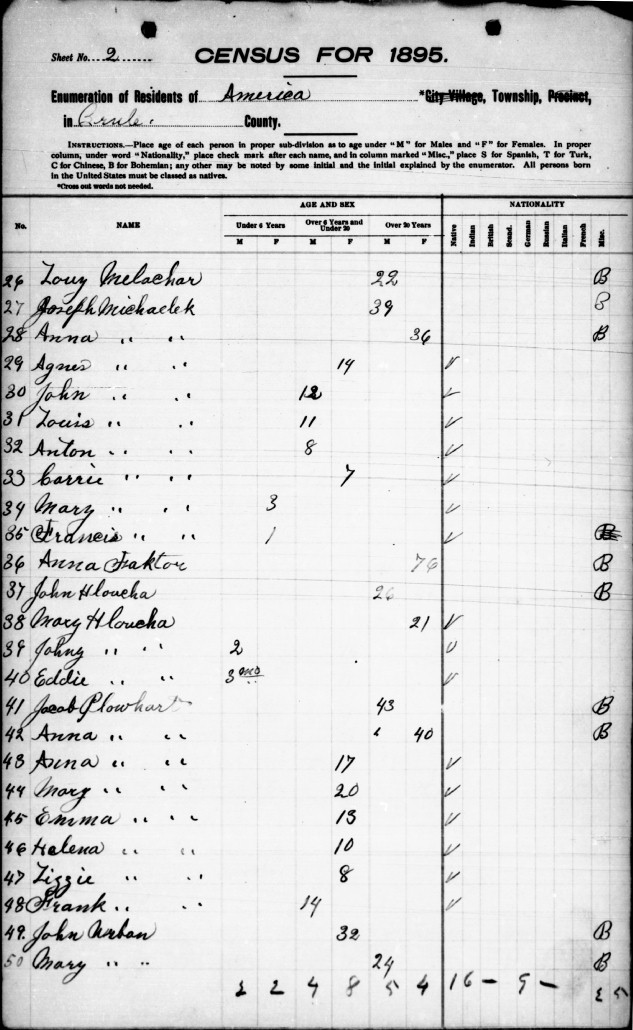 Sheet No. 2
CENSUS FOR 1895.
Enumeration of Residents of America *City Village, Township, Precinct,
in Brule. County.
INSTRUCTIONS.—Place age of each person in proper sub-division as to age under "M" for Males and "F" for Females. In proper
column, under word "Nationality," place check mark after each name, and in column marked "Misc.," place S for Spanish, T for Turk,
C for Chinese, B for Bohemian; any other may be noted by some initial and the initial explained by the enumerator. All persons born
in the United States must be classed as natives.
*Cross out words not needed.
AGE AND SEX NATIONALITY
No. NAME Under 6 Years Over 6 Years and Under 20 Over 20 Years Native Indian British Scand. German Russian Italian French Misc.
M F M F M F
26 22 B
27 Joseph Michaelek 39 B
28 Anna " " 36 B
29 Agnes " " 14 ✓
30 John " " 12 ✓
31 Louis " " 11 ✓
32 Anton " " 8 ✓
33 Carrie " " 7 ✓
34 Mary " " 3 ✓
35 Francis " " 1 ✓ B
36 Anna Faktor 76 B
37 John Hloucha 26 B
38 Mary Hloucha 21 ✓
39 Johny " " 2 ✓
40 Eddie " " 3 mo ✓
41 Jacob Plowhart 43 B
42 Anna " " 40 B
43 Anna " " 17 ✓
44 Mary " " 20 ✓
45 Emma " " 13 ✓
46 Helena " " 10 ✓
47 Lizzie " " 8 ✓
48 Frank " " 14 ✓
49 John Urban 32 B
50 Mary " " 24 B
2 2 4 8 5 4 16 - 9 -